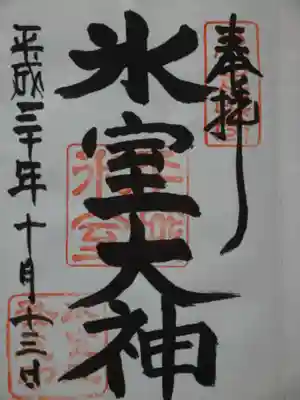 奉拝
氷室大神
平成三十年十月十三日